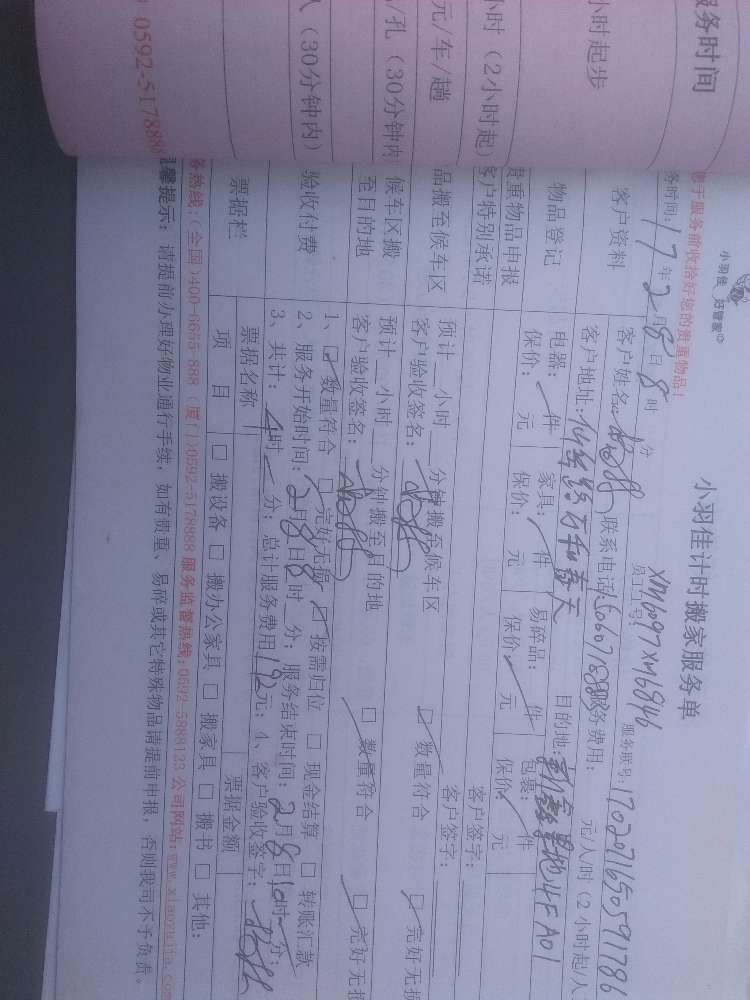 服务时间
小时起步
小时（2小时起）
元/车/趟
/孔（30分钟内
人（30分钟内）
0592-5178888
小羽佳 好管家
小羽佳计时搬家服务单
XM6097 XM6846
员工工号：
服务联号：170207165059 1786
您于服务前收拾好您的贵重物品！
务时间：17年2月8日8时 分
客户资料
客户姓名：
联系电话：
服务费用： 元/人/时（2小时起/人
客户地址：
万和春天
目的地：
4F A01
物品登记
电器： 件
家具： 件
易碎品： 件
包裹： 件
保价： 元
保价： 元
保价： 元
保价： 元
贵重物品申报
客户签字：
客户特别承诺
客户签字：
品搬至候车区
预计 小时 分钟搬至候车区
客户验收签名：
☑ 数量符合
☑ 完好无损
候车区搬
至目的地
预计 小时 分钟搬至目的地
客户验收签名：
☑ 数量符合
☑ 完好无损
验收付费
1、☑ 数量符合 □ 完好无损 ☑ 按需归位 □ 现金结算 □ 转账汇款
2、服务开始时间：2月8日8时 分；服务结束时间：2月8日10时 分；
3、共计：4时 分；总计服务费用192元；4、客户验收签字：
票据栏
票据名称
票据金额
项 目
□ 搬设备 □ 搬办公家具 □ 搬家具 □ 搬书 □ 其他：
务热线：(全国)400-6655-888 (厦门)0592-5178888 服务监督热线：0592-5888123 公司网站：www.xiaoyujia.com
温馨提示：请提前办理好物业通行手续，如有贵重、易碎或其它特殊物品请提前申报，否则我司不予负责。